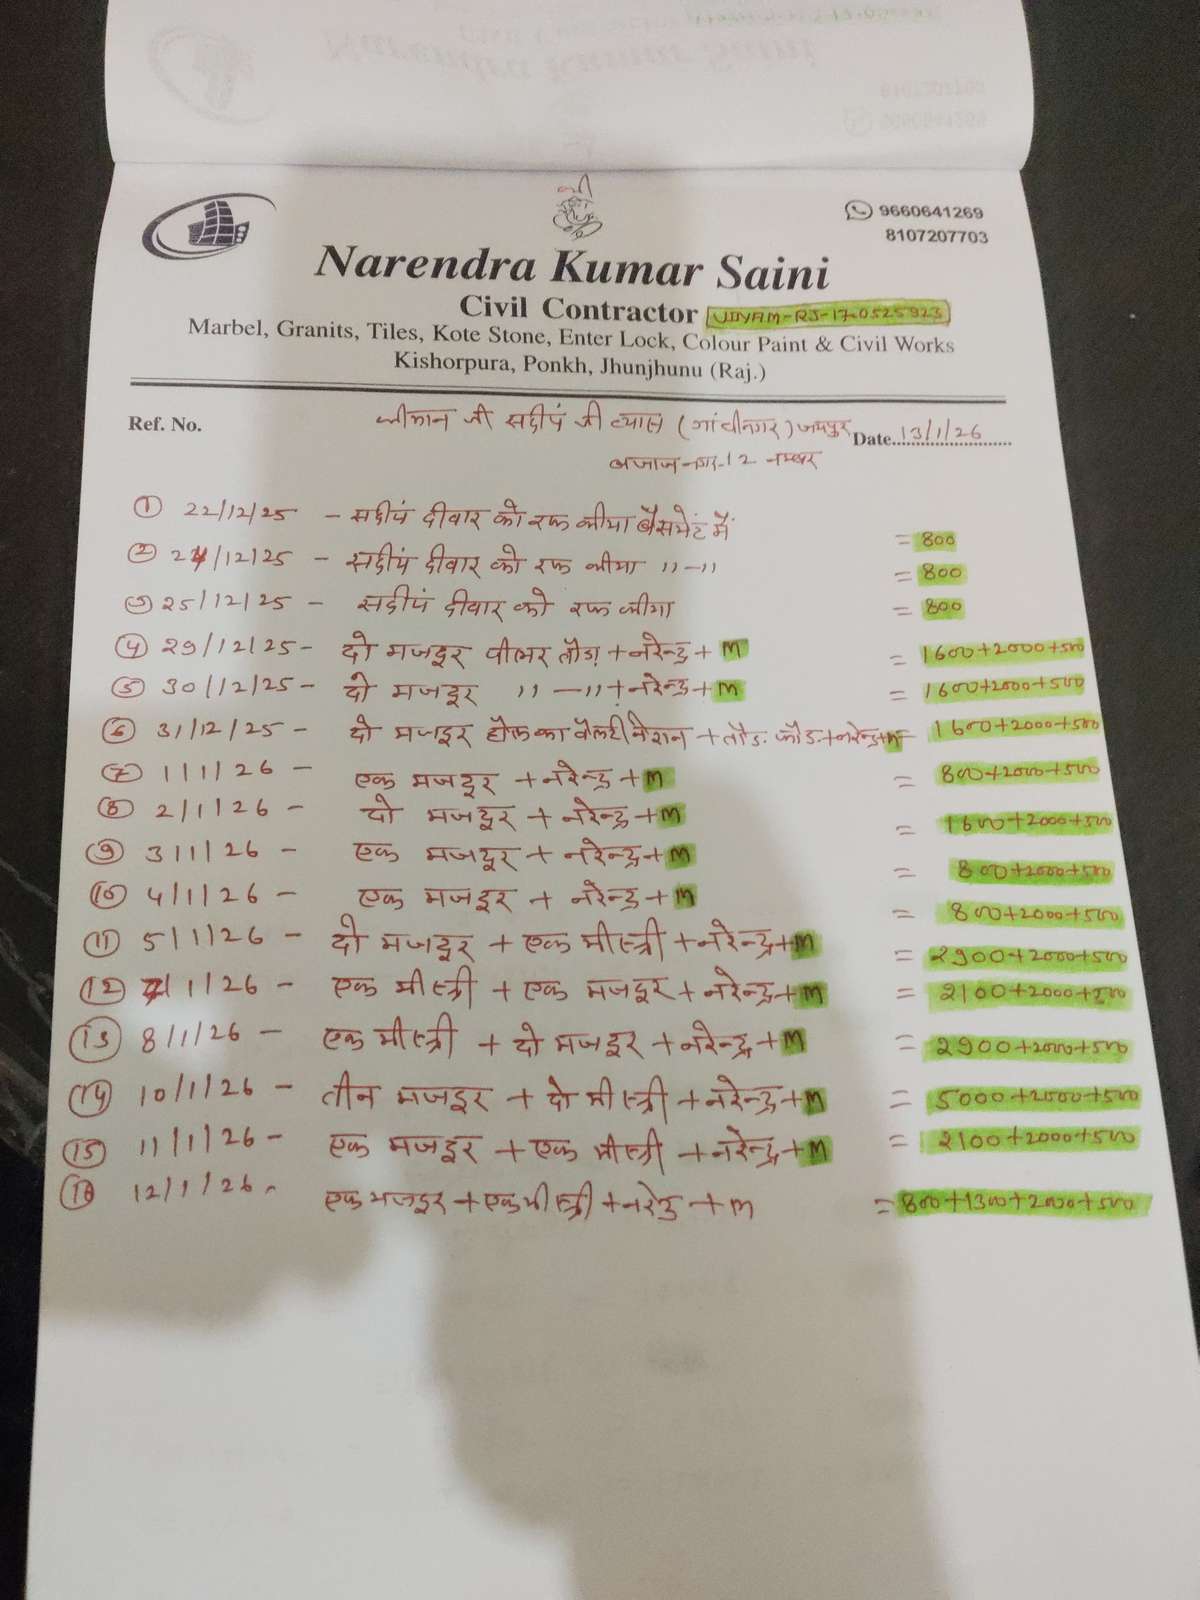 श्री
9660641269
8107207703
Narendra Kumar Saini
Civil Contractor UDYAM-RJ-17-0525923
Marbel, Granits, Tiles, Kote Stone, Enter Lock, Colour Paint & Civil Works
Kishorpura, Ponkh, Jhunjhunu (Raj.)
Ref. No. श्रीमान जी सदीपं जी व्यास (गांधीनगर) जयपुर Date. 13/1/26
बजाज नगर-12 नम्बर
① 22/12/25 - सदीपं दीवार को रफ कीया बैसमेंट में = 800
② 24/12/25 - सदीपं दीवार को रफ कीया ,,-,, = 800
③ 25/12/25 - सदीपं दीवार को रफ कीया = 800
④ 29/12/25 - दो मजदूर पीलर तौडा + नरेन्द्र + M = 1600+2000+500
⑤ 30/12/25 - दो मजदूर ,,-,, + नरेन्द्र + M = 1600+2000+500
⑥ 31/12/25 - दो मजदूर हौल का + तौड फौड + नरेन्द्र + M = 1600+2000+500
⑦ 1/1/26 - एक मजदूर + नरेन्द्र + M = 800+2000+500
⑧ 2/1/26 - दो मजदूर + नरेन्द्र + M = 1600+2000+500
⑨ 3/1/26 - एक मजदूर + नरेन्द्र + M = 800+2000+500
⑩ 4/1/26 - एक मजदूर + नरेन्द्र + M = 800+2000+500
⑪ 5/1/26 - दो मजदूर + एक मीस्त्री + नरेन्द्र + M = 2900+2000+500
⑫ 7/1/26 - एक मीस्त्री + एक मजदूर + नरेन्द्र + M = 2100+2000+500
⑬ 8/1/26 - एक मीस्त्री + दो मजदूर + नरेन्द्र + M = 2900+2000+500
⑭ 10/1/26 - तीन मजदूर + दो मीस्त्री + नरेन्द्र + M = 5000+2000+500
⑮ 11/1/26 - एक मजदूर + एक मीस्त्री + नरेन्द्र + M = 2100+2000+500
⑯ 12/1/26 - एक मजदूर + एक मीस्त्री + नरेन्द्र + M = 800+1300+2000+500